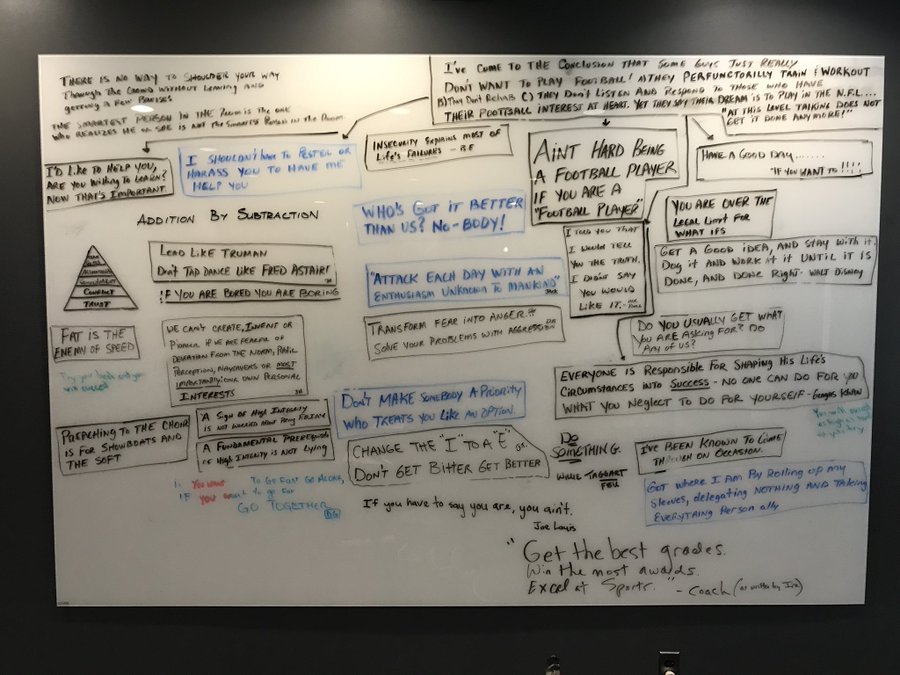 THERE IS NO WAY TO SHOULDER YOUR WAY
THROUGH THE CROWD WITHOUT LEAVING AND
GETTING A FEW BRUISES
THE SMARTEST PERSON IN THE ROOM IS THE ONE
WHO REALIZES HE OR SHE IS NOT THE SMARTEST PERSON IN THE ROOM
I'VE COME TO THE CONCLUSION THAT SOME GUYS JUST REALLY
DON'T WANT TO PLAY FOOTBALL! A) THEY PERFUNCTORILLY TRAIN & WORKOUT
B) THEY DON'T REHAB C) THEY DON'T LISTEN AND RESPOND TO THOSE WHO HAVE
THEIR FOOTBALL INTEREST AT HEART. YET THEY SAY THEIR DREAM IS TO PLAY IN THE N.F.L....
"AT THIS LEVEL TALKING DOES NOT
GET IT DONE ANYMORE!"
I'D LIKE TO HELP YOU,
ARE YOU WILLING TO LEARN?
NOW THAT'S IMPORTANT.
I SHOULDN'T HAVE TO PESTER OR
HARASS YOU TO HAVE ME
HELP YOU
INSECURITY EXPLAINS MOST OF
LIFE'S FAILURES - B.E
AINT HARD BEING
A FOOTBALL PLAYER
IF YOU ARE A
"FOOTBALL PLAYER"
HAVE A GOOD DAY.......
"IF YOU WANT TO"!!!!
ADDITION BY SUBTRACTION
WHO'S GOT IT BETTER
THAN US? NO-BODY!
YOU ARE OVER THE
LEGAL LIMIT FOR
WHAT IFS
I TOLD YOU THAT
I WOULD TELL
YOU THE TRUTH.
I DIDN'T SAY
YOU WOULD
LIKE IT.
CONFLICT
TRUST
LEAD LIKE TRUMAN
DON'T TAP DANCE LIKE FRED ASTAIR!
IF YOU ARE BORED YOU ARE BORING
"ATTACK EACH DAY WITH AN
ENTHUSIASM UNKNOWN TO MANKIND"
JACK
GET A GOOD IDEA, AND STAY WITH IT.
DOG IT AND WORK AT IT UNTIL IT IS
DONE, AND DONE RIGHT - WALT DISNEY
FAT IS THE
ENEMY OF SPEED
WE CAN'T CREATE, INVENT OR
PIONEER IF WE ARE FEARFUL OF
DEVIATION FROM THE NORM, PUBLIC
PERCEPTION, NAYSAYERS OR MOST
IMPORTANTLY: OUR OWN PERSONAL
INTERESTS
TRANSFORM FEAR INTO ANGER?!
SOLVE YOUR PROBLEMS WITH AGGRESSION
DO YOU USUALLY GET WHAT
YOU ARE ASKING FOR? DO
ANY OF US?
EVERYONE IS RESPONSIBLE FOR SHAPING HIS LIFE'S
CIRCUMSTANCES INTO SUCCESS - NO ONE CAN DO FOR YOU
WHAT YOU NEGLECT TO DO FOR YOURSELF - GENGIS KHAN
DON'T MAKE SOMEBODY A PRIORITY
WHO TREATS YOU LIKE AN OPTION.
PREACHING TO THE CHOIR
IS FOR SHOWBOATS AND
THE SOFT
A SIGN OF HIGH INTEGRITY
IS NOT WORRIED ABOUT BEING
A FUNDAMENTAL PREREQUISITE
OF HIGH INTEGRITY IS NOT LYING
CHANGE THE "I" TO A "E" OR
DON'T GET BITTER GET BETTER
DO
SOMETHING.
WILLIE TAGGART
FSU
I'VE BEEN KNOWN TO COME
THROUGH ON OCCASION.
GOT WHERE I AM BY ROLLING UP MY
SLEEVES, DELEGATING NOTHING AND TAKING
EVERYTHING PERSONALLY
IF YOU WANT TO GO FAST GO ALONE,
IF YOU WANT TO GO FAR
GO TOGETHER
If you have to say you are, you ain't.
Joe Louis
"Get the best grades.
Win the most awards.
Excel at Sports."
- Coach (as written by Ira)